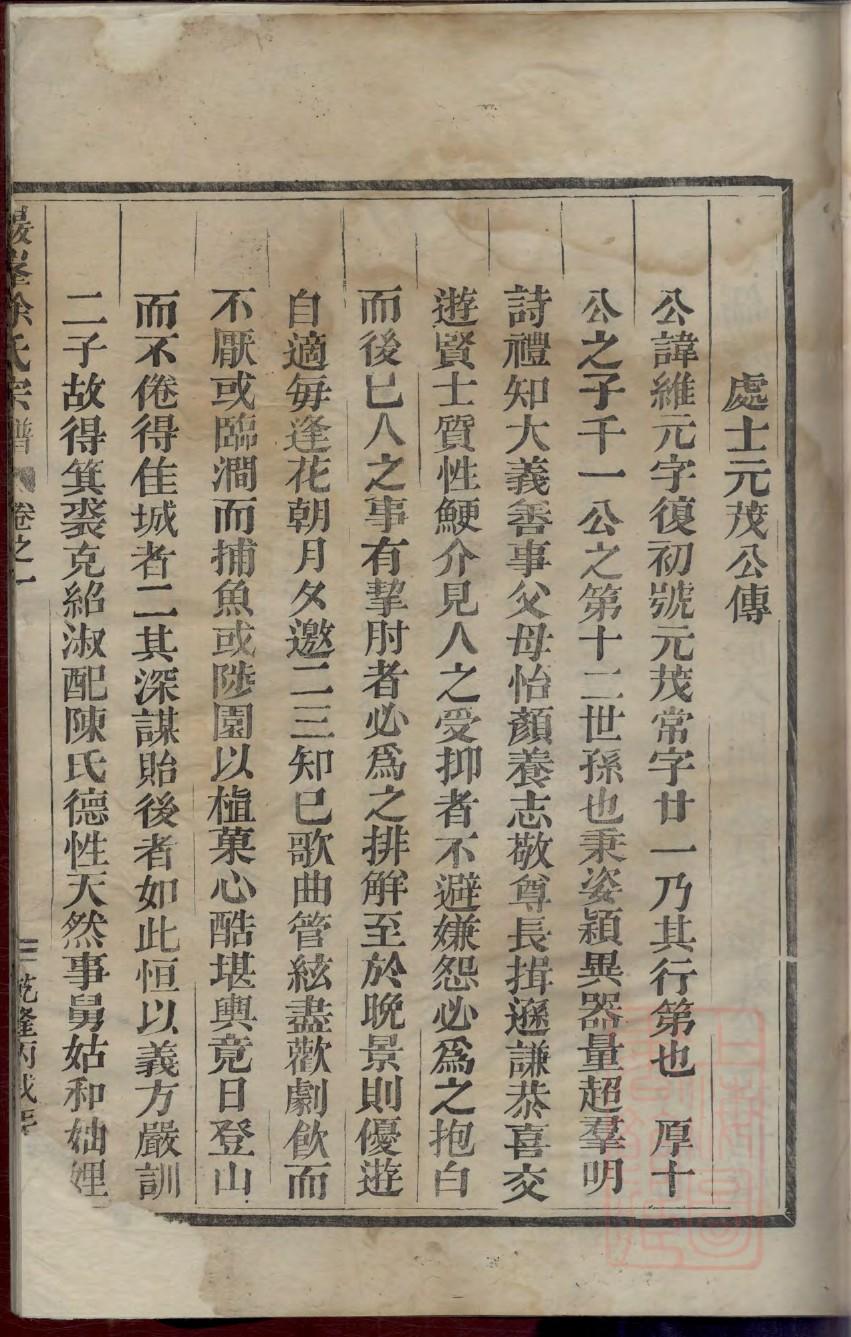 處士元茂公傳
公諱維元字復初號元茂常字廿一乃其行第也　厚十
公之子千一公之第十二世孫也秉姿穎異器量超羣明
詩禮知大義善事父母怡顏養志敬尊長揖遜謙恭喜交
遊賢士質性鯁介見人之受抑者不避嫌怨必爲之抱白
而後已人之事有掣肘者必爲之排解至於晚景則優遊
自適每逢花朝月夕邀二三知已歌曲管絃盡歡劇飲而
不厭或臨澗而捕魚或陟園以植菓心酷堪輿竟日登山
而不倦得佳城者二其深謀貽後者如此恒以義方嚴訓
二子故得箕裘克紹淑配陳氏德性天然事舅姑和妯娌
峯徐氏宗譜　卷之一　乾隆丙戌